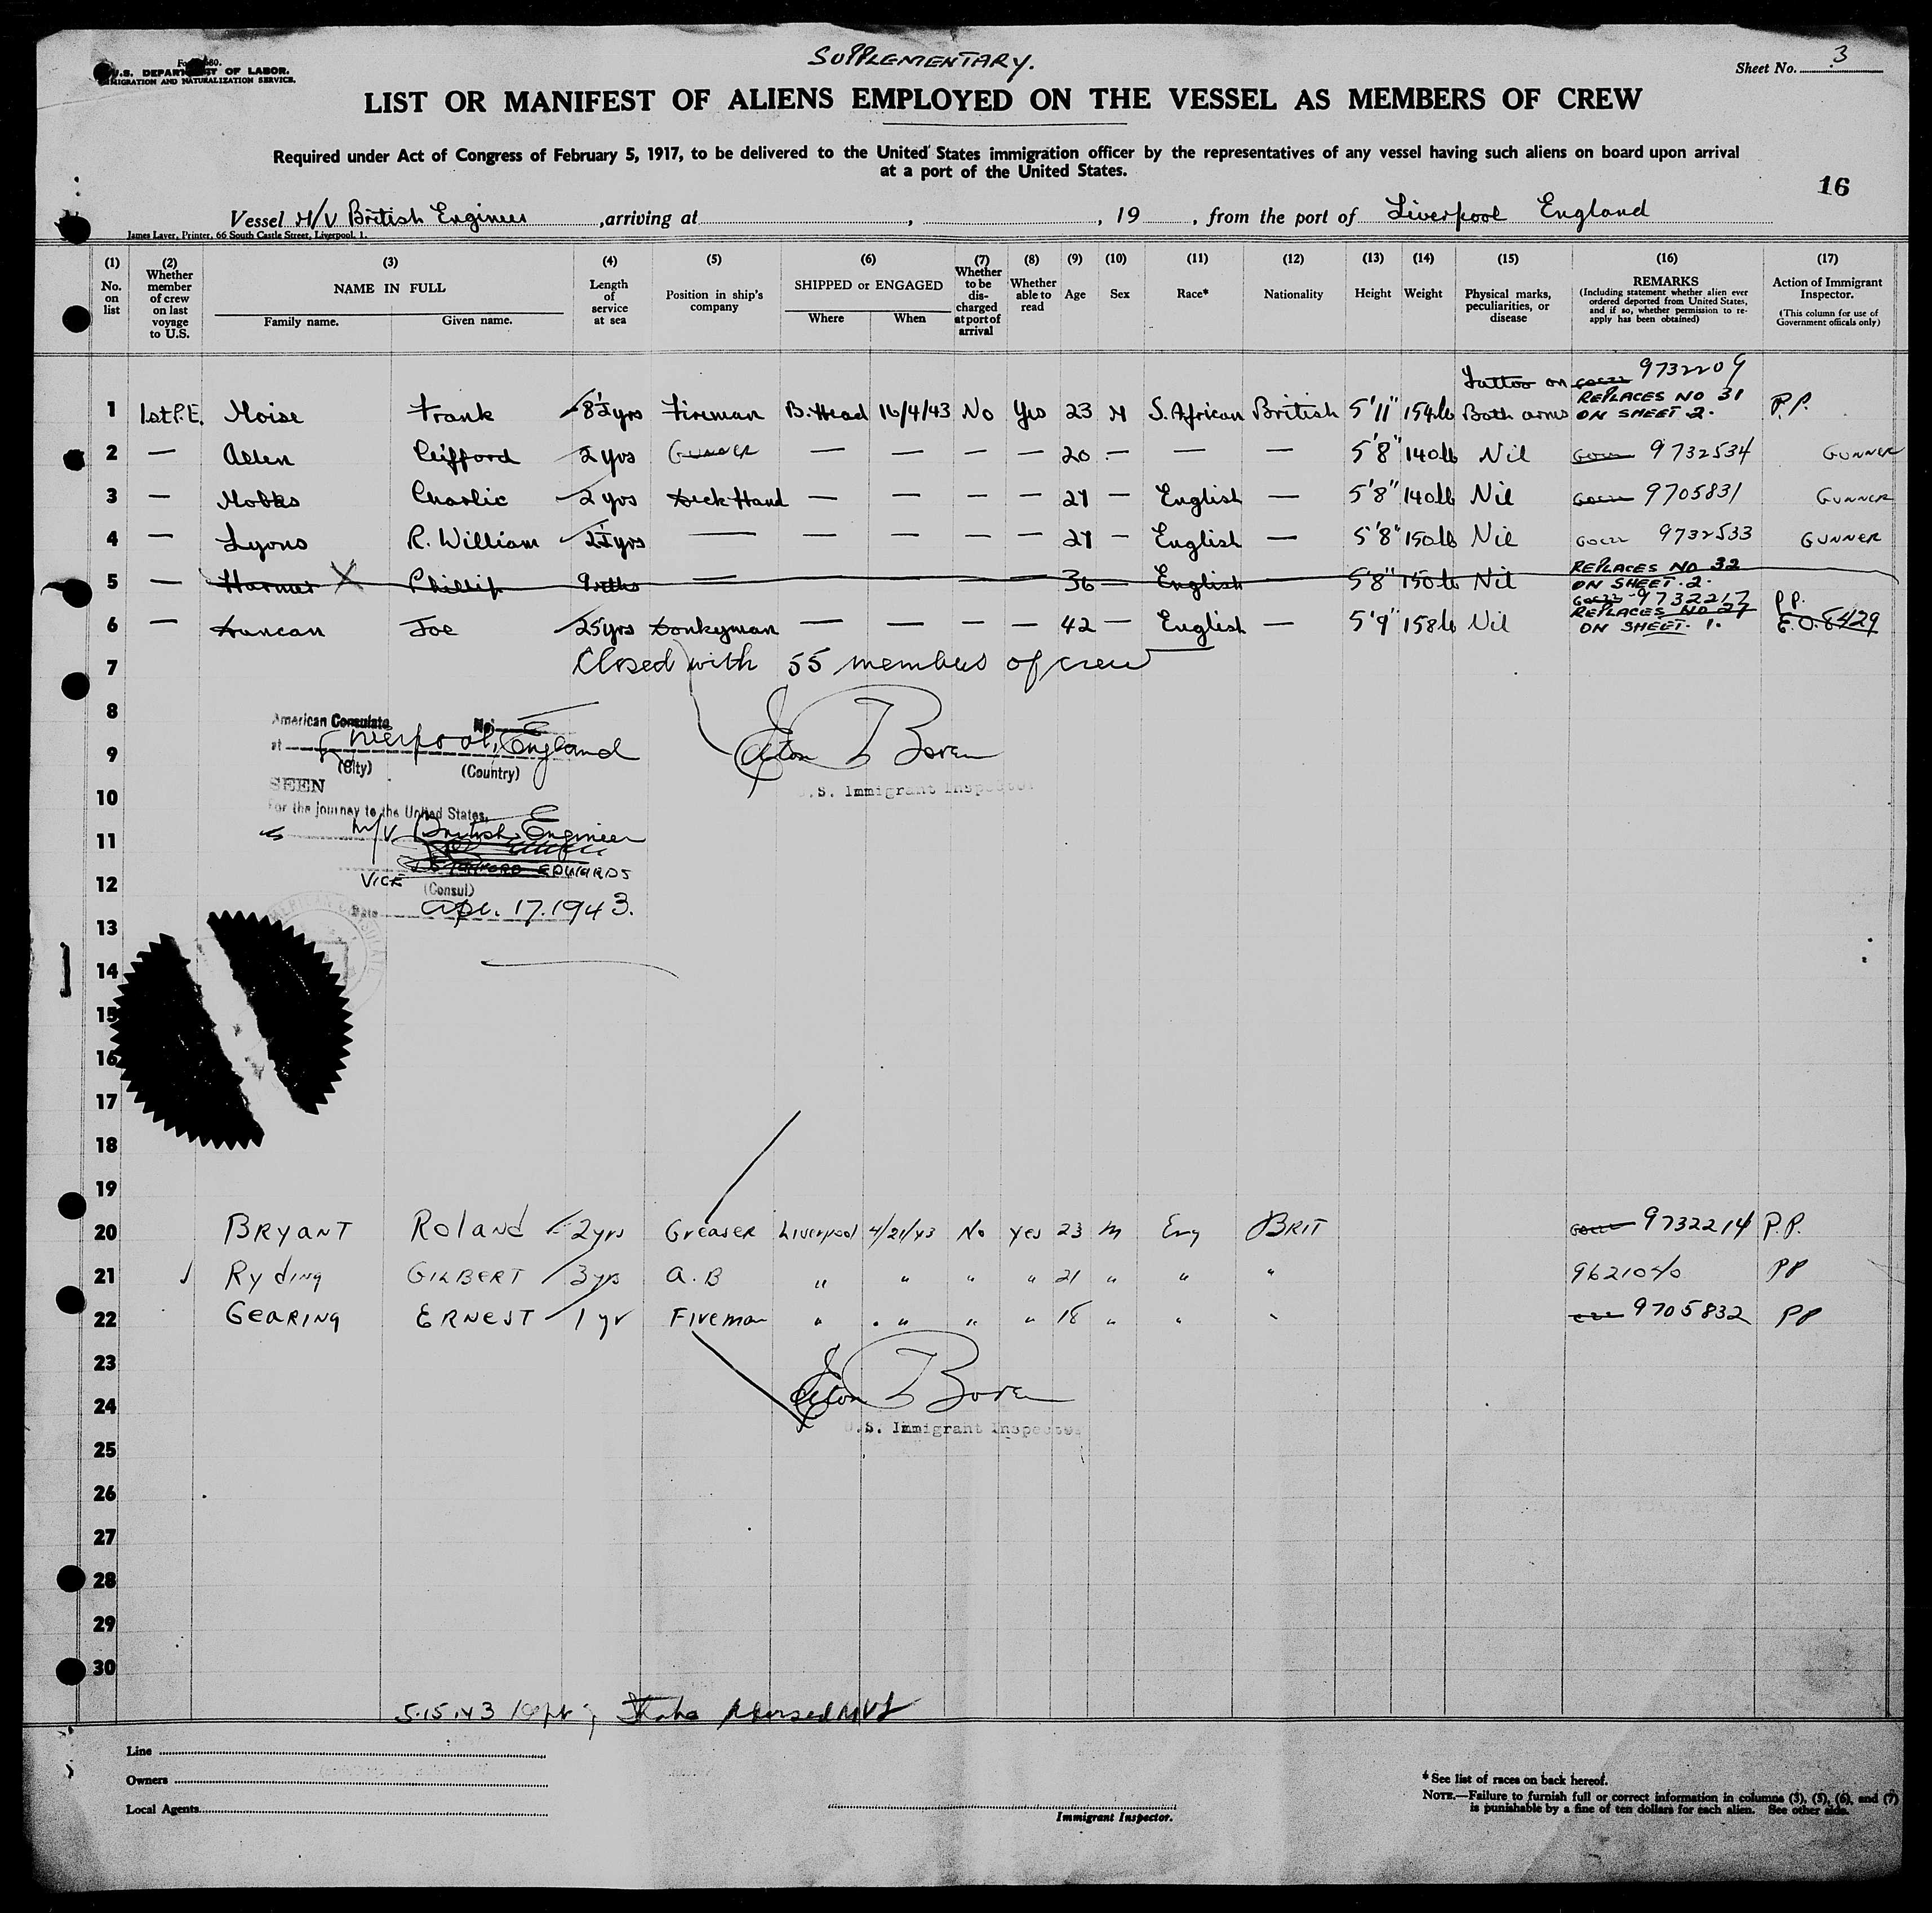 SUPPLEMENTARY.
U.S. DEPARTMENT OF LABOR.
IMMIGRATION AND NATURALIZATION SERVICE.
Sheet No. 3
LIST OR MANIFEST OF ALIENS EMPLOYED ON THE VESSEL AS MEMBERS OF CREW
Required under Act of Congress of February 5, 1917, to be delivered to the United States immigration officer by the representatives of any vessel having such aliens on board upon arrival
at a port of the United States.
16
Vessel M/V British Engineer, arriving at , , 19 , from the port of Liverpool England
James Laver, Printer, 66 South Castle Street, Liverpool, 1.
(1) No. on list
(2) Whether member of crew on last voyage to U.S.
(3) NAME IN FULL Family name. Given name.
(4) Length of service at sea
(5) Position in ship's company
(6) SHIPPED or ENGAGED Where When
(7) Whether to be discharged at port of arrival
(8) Whether able to read
(9) Age
(10) Sex
(11) Race*
(12) Nationality
(13) Height
(14) Weight
(15) Physical marks, peculiarities, or disease
(16) REMARKS (Including statement whether alien ever ordered deported from United States, and if so, whether permission to re-apply has been obtained)
(17) Action of Immigrant Inspector. (This column for use of Government officals only)
1 Moise Frank 8½yrs Fireman B.Head 16/4/43 No Yes 23 M S. African British 5'11" 154lb Tattoo on Both arms 9732209 REPLACES NO 31 ON SHEET 2. P.P.
2 — Allen Clifford 2 yrs GUNNER — — — — 20 — — — 5'8" 140lb Nil 9732534 GUNNER
3 — Hobbs Charlie 2 yrs Deck Hand — — — — 27 — English — 5'8" 140lb Nil 9705831 GUNNER
4 — Lyons R. William 2½yrs — — — — — 27 — English — 5'8" 150lb Nil 9732533 GUNNER
5 — Harmer X Phillip 9mths — — — — — 36 — English 5'8" 150lb Nil REPLACES NO 32 ON SHEET 2.
6 — Duncan Joe 25yrs Donkyman — — — — 42 — English — 5'9" 158lb Nil 9732217 REPLACES NO 27 ON SHEET 1. P.P. E.O. 8429
7 Closed with 55 members of crew
8
American Consulate No.
at Liverpool, England
9
(City) (Country)
U.S. Immigrant Inspector
SEEN
10
For the journey to the United States,
M/V British Engineer
11
12
VICE EDWARDS
(Consul)
Date Apr. 17. 1943.
13
14
15
16
17
18
19
20 BRYANT Roland 2yrs Greaser Liverpool 4/21/43 No Yes 23 M Eng BRIT 9732214 P.P.
21 Ryding GILBERT 3yrs A.B " " " " 21 " " " 9621040 PP
22 GEARING ERNEST 1 yr Fireman " " " " 18 " " " 9705832 PP
23
24
U.S. Immigrant Inspector
25
26
27
28
29
30
5.15.43
Line
Owners
Local Agents
Immigrant Inspector.
* See list of races on back hereof.
NOTE.—Failure to furnish full or correct information in columns (3), (5), (6), and (7)
is punishable by a fine of ten dollars for each alien. See other side.